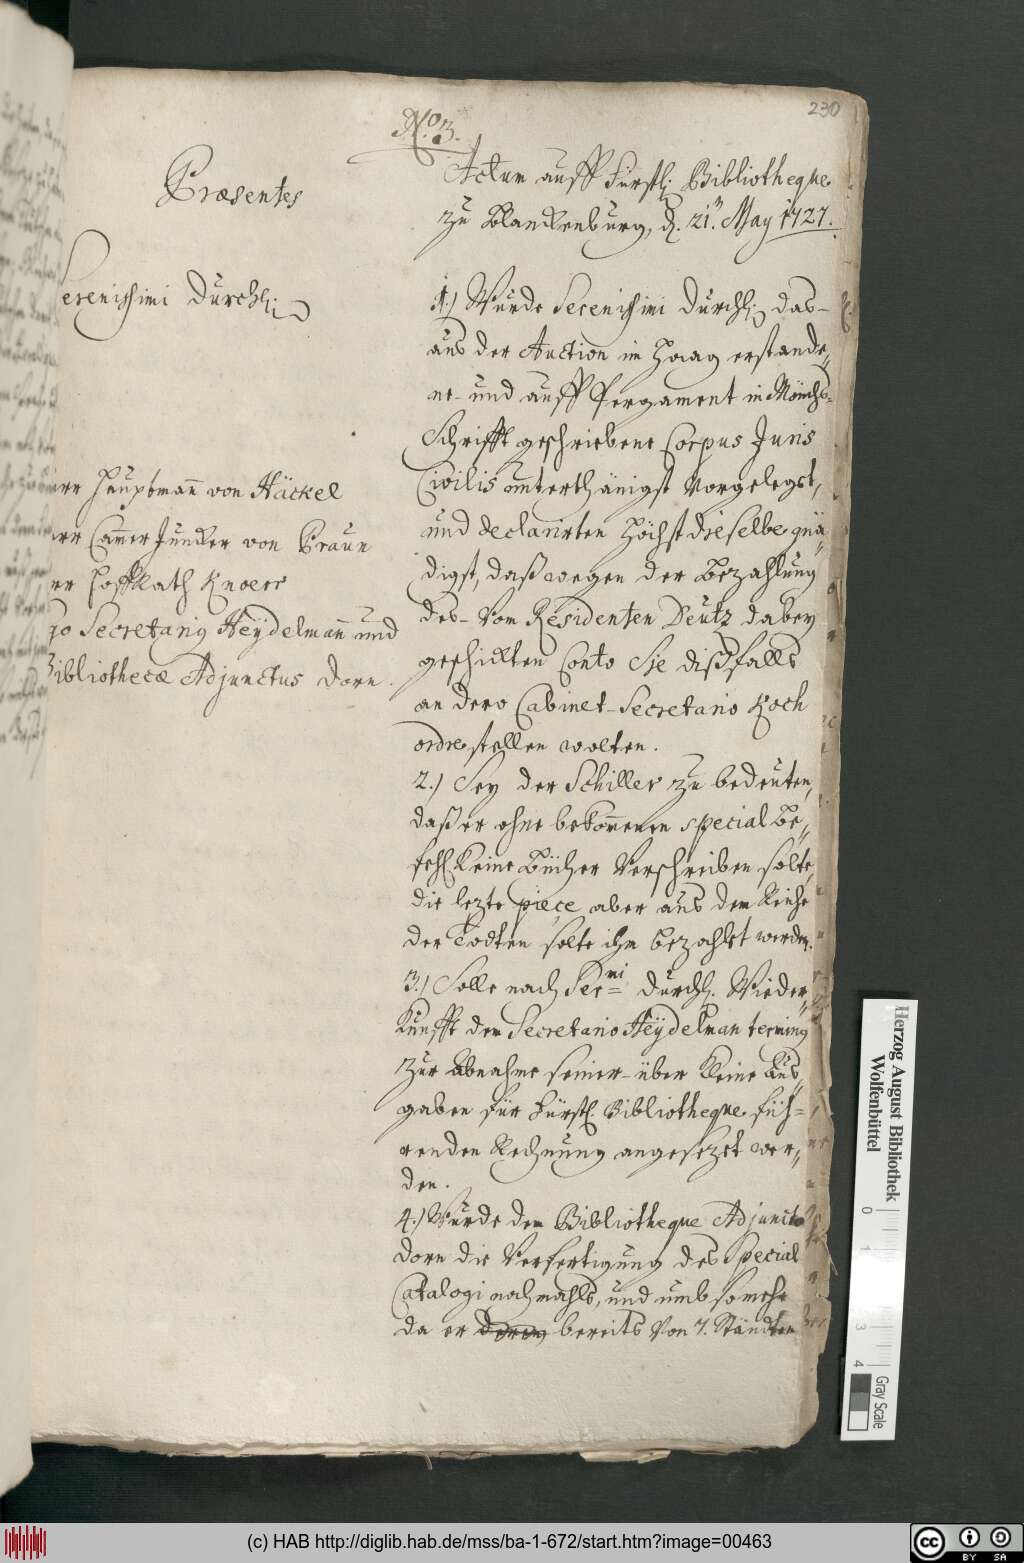 230
No. 3.
Præsentes
Serenissimi Durchl.
Herr Hauptmann von Häckel
Herr Cammer Juncker von Praun
Herr Hoff Rath Knoerr
Secretarius Heÿdelmann und
Bibliothecæ Adjunctus Dorn.
Actum auff Fürstl. Bibliotheque
zu Blanckenburg, d. 21. May 1727.
1.) Wurde Serenissimi Durchl. das-
aus der Auction in Haag erstande-
ne- und auff Pergament in Mönchs-
Schrifft geschriebene Corpus Juris
Civilis unterthänigst vorgelegst,
und declarirten Höchst dieselbe gnä-
digst, daß wegen der Bezahlung
des- vom Residenten Deütz dabey
geschickten Conto Sie dißfalls
an dero Cabinet-Secretario Koch
ordre stellen wolten.
2.) Sey der Schiller zu bedeuten,
daß er ohne bekommenen special Be-
fehl keine Bücher verschreiben solte,
die lezte piece aber aus dem Reiche
der Todten solte ihm bezahlet werden.
3.) Solle nach Ser.mi Durchl. Wieder-
kunfft dem Secretario Heÿdelman terminus
zur Abnahme seiner- über kleine Aus-
gaben für Fürstl. Bibliotheque füh-
renden Rechnung angesezet wer-
den.
4.) Wurde dem Bibliotheque Adjuncto
Dorn die Verfertigung des Special
Catalogi nochmahls, und umb somehr
da er bereits von 7. Ständten
Herzog August Bibliothek
Wolfenbüttel
0
1
3
4
Gray Scale
(c) HAB http://diglib.hab.de/mss/ba-1-672/start.htm?image=00463
cc
BY SA